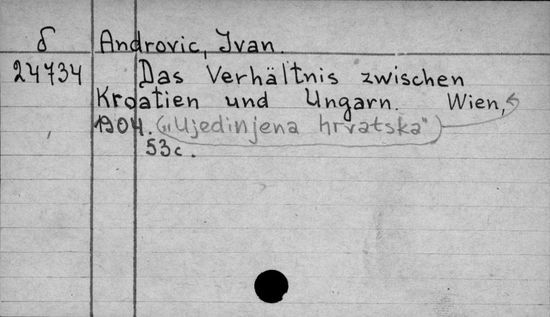 δ Androvic, Ivan.
24734 Das Verhältnis zwischen
Kroatien und Ungarn. Wien,
1904. („Ujedinjena hrvatska")
53c.